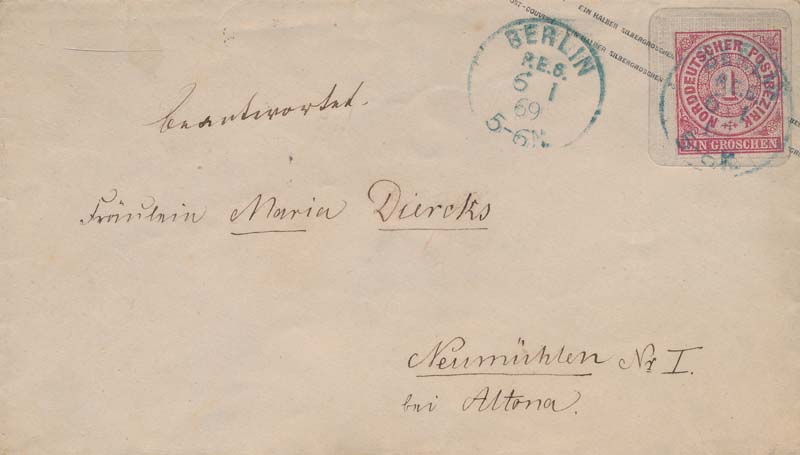 POST-COUVERT EIN HALBER SILBERGROSCHEN
EIN HALBER SILBERGROSCHEN
BERLIN
P.E.6.
6 1
69
5-6N.
NORDDEUTSCHER POSTBEZIRK
1
EIN GROSCHEN
beantwortet.
Fräulein Maria Diercks
Neumühlen Nr I.
bei Altona.